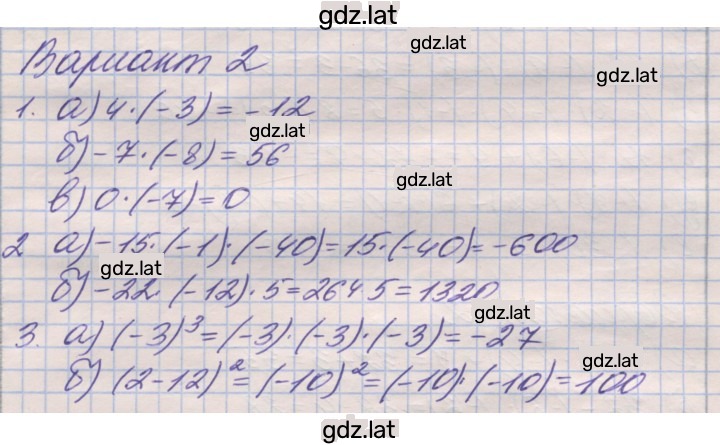 gdz.lat
gdz.lat
Вариант 2
gdz.lat
1. а) 4·(-3) = -12
gdz.lat
б) -7·(-8) = 56
gdz.lat
в) 0·(-7) = 0
2 а) -15·(-1)·(-40) = 15·(-40) = -600
gdz.lat
б) -22·(-12)·5 = 264·5 = 1320
gdz.lat
3. а) (-3)³ = (-3)·(-3)·(-3) = -27
gdz.lat
б) (2-12)² = (-10)² = (-10)·(-10) = 100
gdz.lat